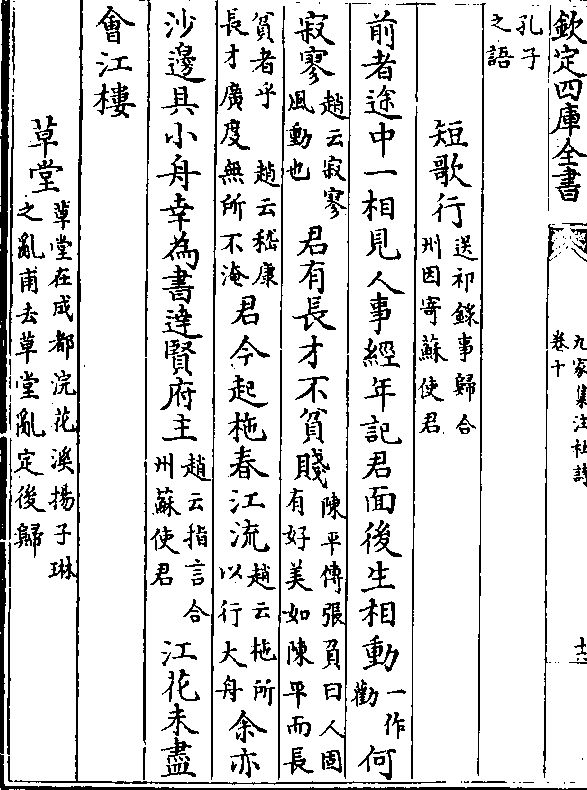 欽定四庫全書
九家集注杜詩
卷十
十二
孔子
之語
短歌行送祁錄事歸合
州因寄蘇使君
前者途中一相見人事經年記君面後生相動一作
勸何
寂寥趙云寂寥
風動也君有長才不貧賤陳平傳張負曰人固
有好美如陳平而長
貧者乎 趙云嵇康
長才廣度無所不淹君今起柂春江流趙云柂所
以行大舟余亦
沙邊具小舟幸為書達賢府主趙云指言合
州蘇使君江花未盡
會江樓
草堂草堂在成都浣花溪揚子琳
之亂甫去草堂亂定後歸